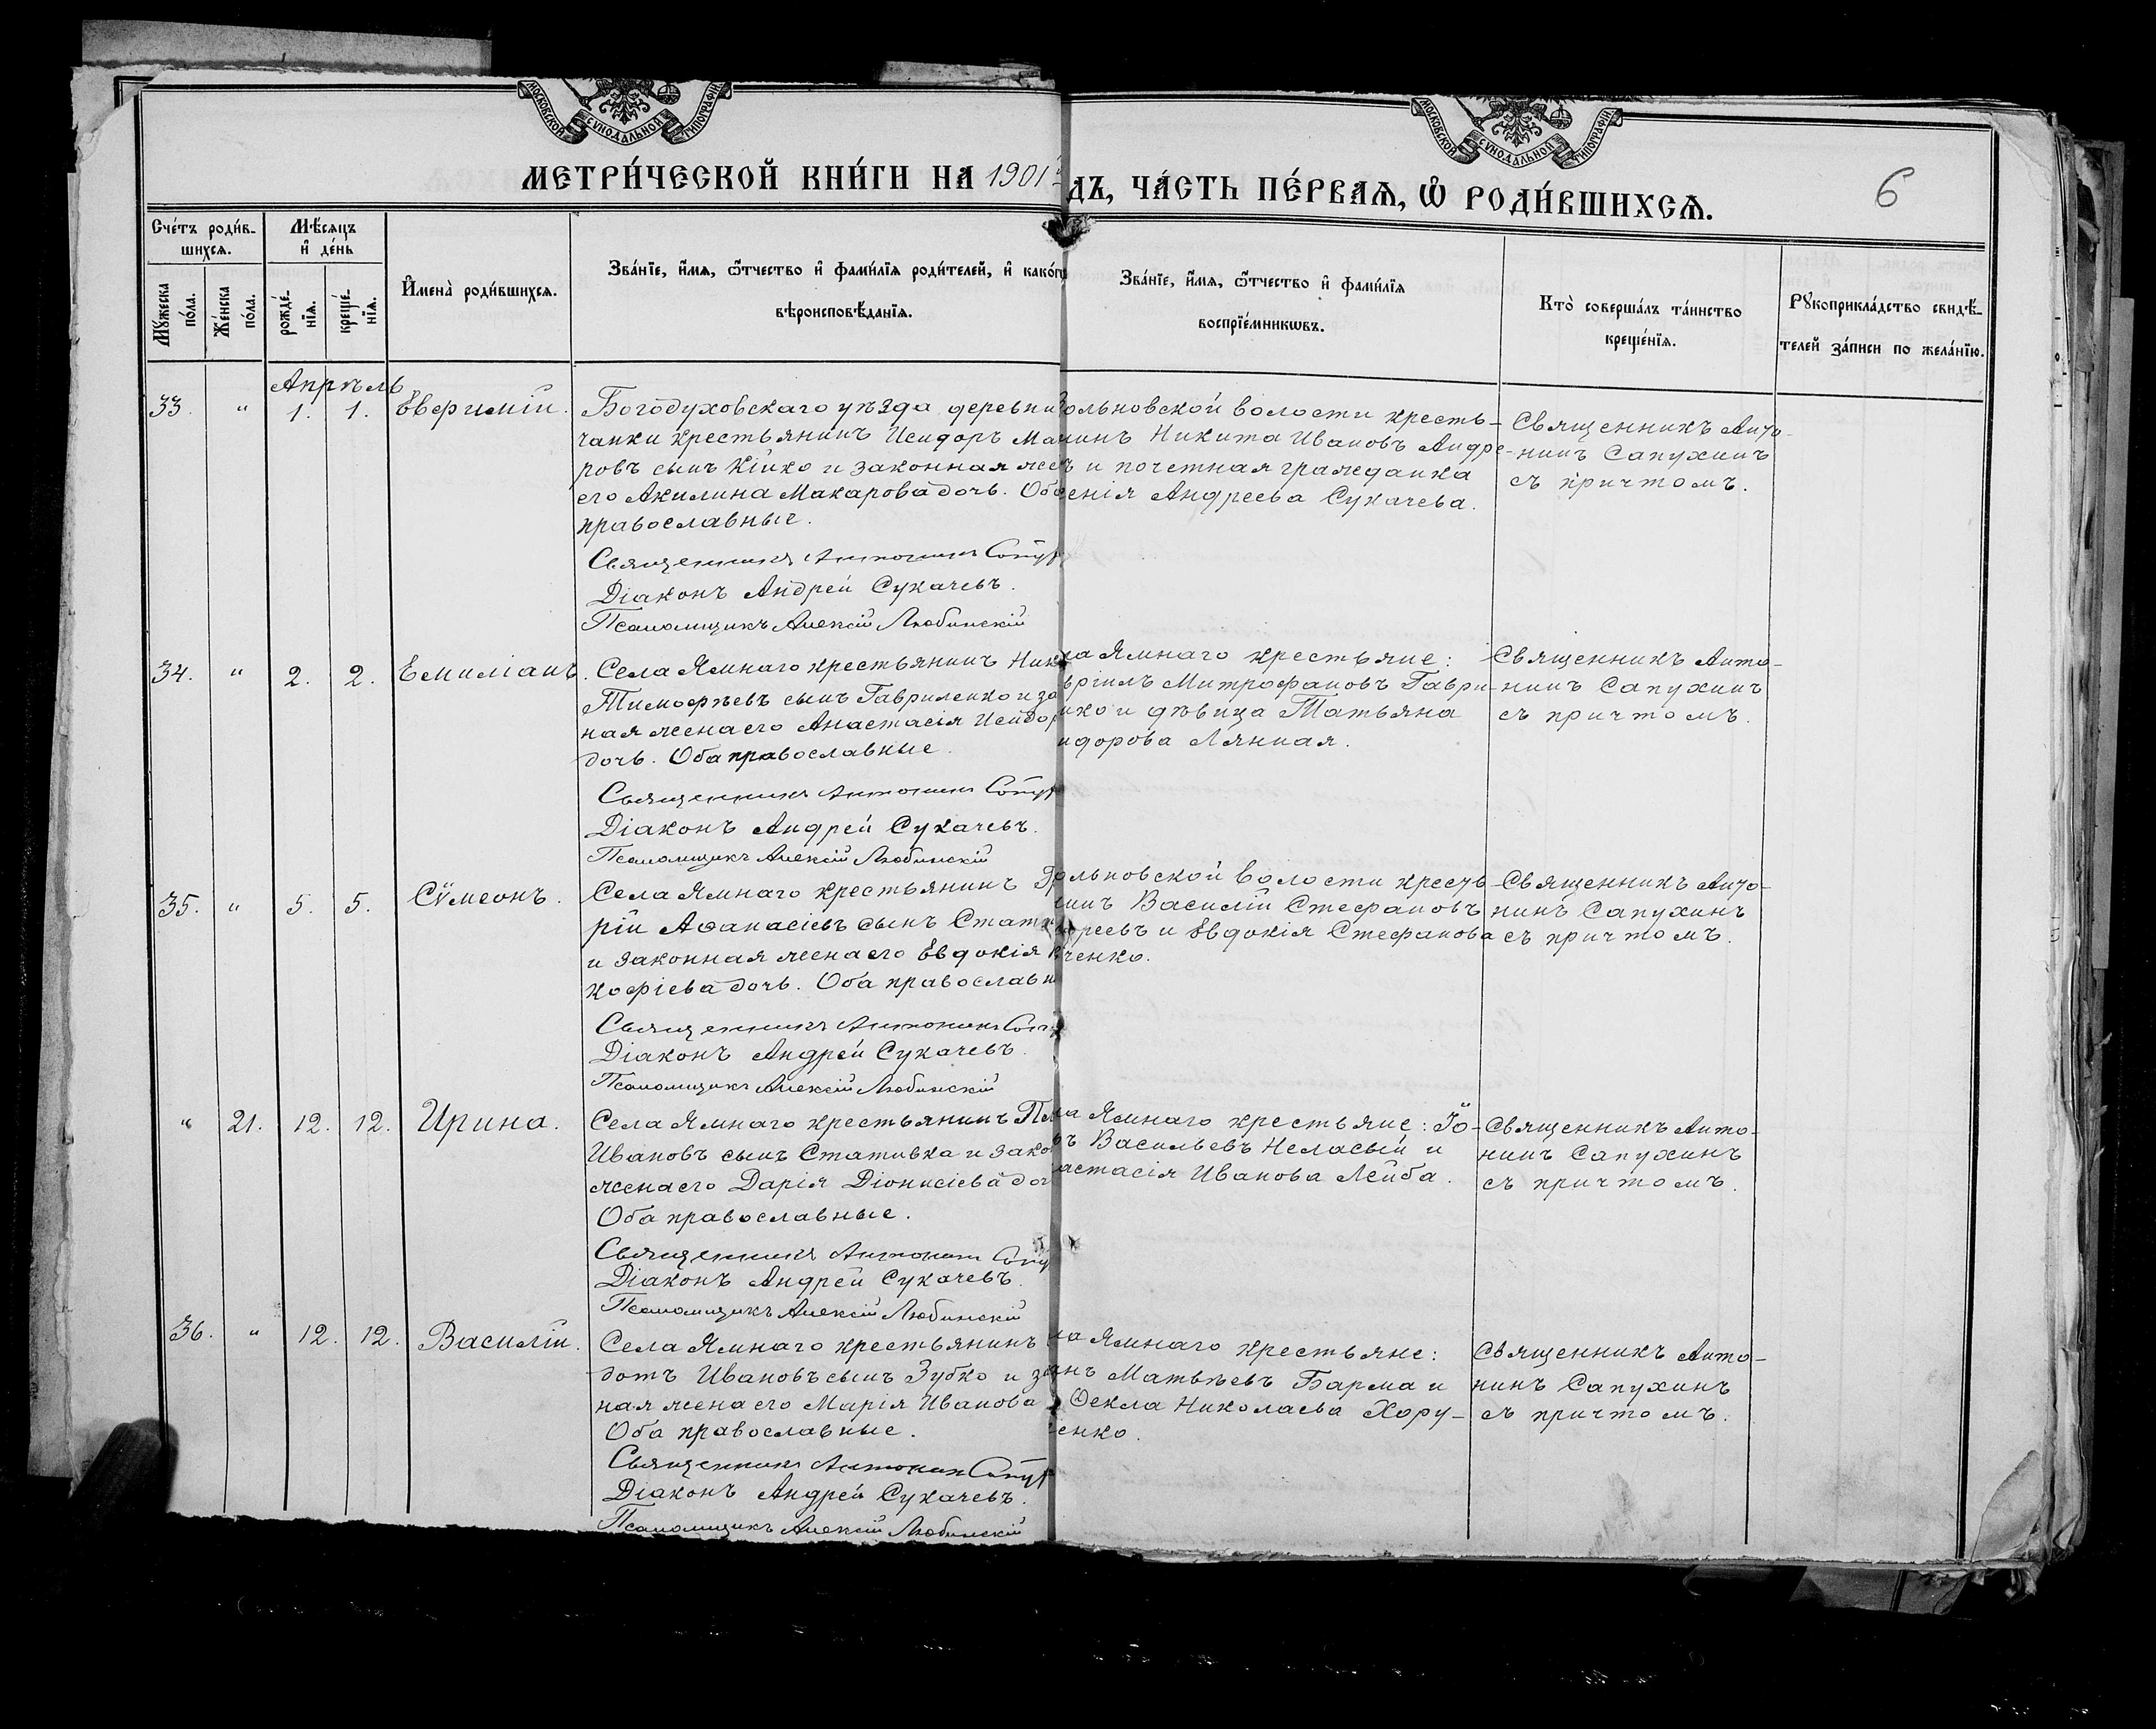 МОСКОВСКОЙ СУНОДАЛЬНОЙ ТИПОГРАФІИ
МОСКОВСКОЙ СУНОДАЛЬНОЙ ТИПОГРАФІИ
МЕТРИ́ЧЕСКОЙ КНИ́ГИ НА 1901
ДЪ, ЧА́СТЬ ПЕ́РВАѦ, Ѡ҆ РОДИ́ВШИХСѦ.
6
Сче́тъ роди́в-
шихсѧ.
Мѣ́сѧцъ
и҆ де́нь
Мꙋ́жеска по́ла.
Же́нска по́ла.
рожде́-
нїѧ.
креще́-
нїѧ.
И҆мена̀ роди́вшихсѧ.
Зва́нїе, и҆́мѧ, ѻ҆́тчество и҆ фами́лїѧ роди́телей, и҆ како́гѡ
вѣроисповѣ́данїѧ.
Зва́нїе, и҆́мѧ, ѻ҆́тчество и҆ фами́лїѧ
воспрїе́мникѡвъ.
Кто̀ соверша́лъ та́инство
креще́нїѧ.
Рꙋкоприкла́дство свидѣ́-
телей за́писи по жела́нїю.
Апрѣль
33. " 1. 1. Евѳимій.
Богодуховскаго уѣзда деревни
чанки крестьянинъ Исидоръ Ма
ровъ сынъ Кійко и законная жен
его Акилина Макарова дочь. Об
православные.
Священникъ Антонинъ Сапух
Діаконъ Андрей Сукачевъ.
Псаломщикъ Алексій Любинскій
ольновской волости кресть-
нинъ Никита Ивановъ Андре-
ъ и почетная гражданка
сенія Андреева Сукачева.
Священникъ Анто-
нинъ Сапухинъ
съ причтомъ.
34. " 2. 2. Емиліанъ.
Села Ямнаго крестьянинъ Ник
Тимоѳѣевъ сынъ Гавриленко и за
ная жена его Анастасія Исидор
дочь. Оба православные.
Священникъ Антонинъ Сапух
Діаконъ Андрей Сукачевъ.
Псаломщикъ Алексій Любинскій
ла Ямнаго крестьяне:
вріилъ Митрофановъ Гаври-
нко и дѣвица Татьяна
идорова Лянная.
Священникъ Анто-
нинъ Сапухинъ
съ причтомъ.
35. " 5. 5. Сѵмеонъ.
Села Ямнаго крестьянинъ
рій Аѳанасіевъ сынъ Стати
и законная жена его Евдокія
кофіева дочь. Оба православн
Священникъ Антонинъ Сапу
Діаконъ Андрей Сукачевъ.
Псаломщикъ Алексій Любинскій
ольновской волости кресть
нинъ Василій Стефановъ
дреевъ и Евдокія Стефанова
ченко.
Священникъ Анто-
нинъ Сапухинъ
съ причтомъ.
" 21. 12. 12. Ирина.
Села Ямнаго крестьянинъ Пл
Ивановъ сынъ Стативка и зако
жена его Дарія Діонисіева доч
Оба православные.
Священникъ Антонинъ Сапу
Діаконъ Андрей Сукачевъ.
Псаломщикъ Алексій Любинскій
ла Ямнаго крестьяне: Іо-
ъ Васильевъ Неласый и
астасія Иванова Лейба.
Священникъ Анто-
нинъ Сапухинъ
съ причтомъ.
36. " 12. 12. Василій.
Села Ямнаго крестьянинъ
дотъ Ивановъ сынъ Зубко и за
ная жена его Марія Иванова
Оба православные.
Священникъ Антонинъ Сапух
Діаконъ Андрей Сукачевъ.
Псаломщикъ Алексій Любинскій
ла Ямнаго крестьяне:
анъ Матвѣевъ Барма и
Ѳекла Николаева Хору-
енко.
Священникъ Анто-
нинъ Сапухинъ
съ причтомъ.